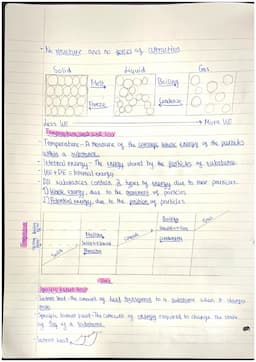 - No structure and no forces of attraction
Solid Liquid Gas
Melt Boiling
Freeze Condense
Less KE → More KE
Temperature and
- Temperature - A measure of the average kinetic energy of the particles
within a substance.
- Internal energy - The energy stored by the particles of substance
- KE + PE = Internal energy
All substances contain 2 types of energy due to their particles.
1) Kinetic energy, due to the movement of particles.
2) Potential energy, due to the position of particles.
Temperature
Boiling
Gas
Melting
Liquid
Solid
Solid + Liquid
Freezing
Time
Specific latent heat
Latent heat - The amount of heat transferred to a substance when it changes
state
Specific latent heat - The amount of energy required to change the state
of 1kg of a substance.
Latent heat